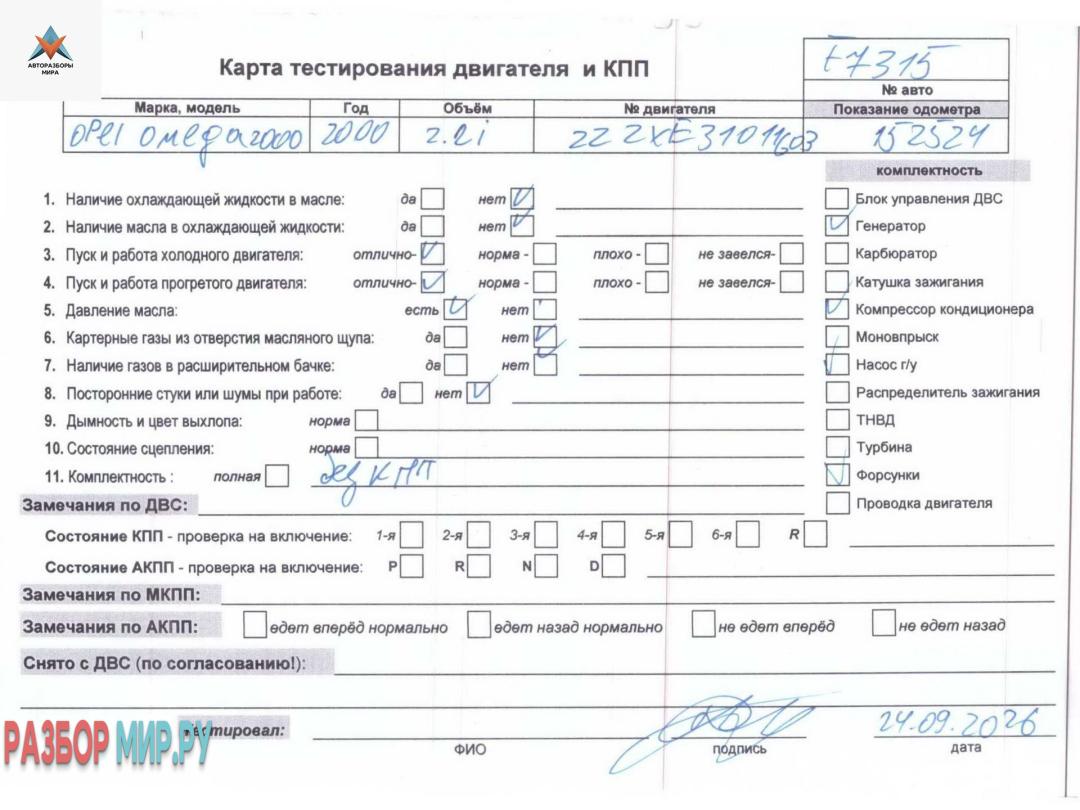 АВТОРАЗБОРЫ
МИРА
Карта тестирования двигателя и КПП
t7315
№ авто
Марка, модель Год Объём № двигателя Показание одометра
OPEl Омega2000 2000 2.2i Z22XE31011603 152524
комплектность
1. Наличие охлаждающей жидкости в масле: да нет
Блок управления ДВС
2. Наличие масла в охлаждающей жидкости: да нет
Генератор
3. Пуск и работа холодного двигателя: отлично- норма - плохо - не завелся-
Карбюратор
4. Пуск и работа прогретого двигателя: отлично- норма - плохо - не завелся-
Катушка зажигания
5. Давление масла: есть нет
Компрессор кондиционера
6. Картерные газы из отверстия масляного щупа: да нет
Моновпрыск
7. Наличие газов в расширительном бачке: да нет
Насос г/у
8. Посторонние стуки или шумы при работе: да нет
Распределитель зажигания
9. Дымность и цвет выхлопа: норма
ТНВД
10. Состояние сцепления: норма
Турбина
11. Комплектность : полная без КПП
Форсунки
Замечания по ДВС:
Проводка двигателя
Состояние КПП - проверка на включение: 1-я 2-я 3-я 4-я 5-я 6-я R
Состояние АКПП - проверка на включение: P R N D
Замечания по МКПП:
Замечания по АКПП: едет вперёд нормально едет назад нормально не едет вперёд не едет назад
Снято с ДВС (по согласованию!):
РАЗБОРМИР.РУ
тестировал:
24.09.2026
ФИО подпись дата